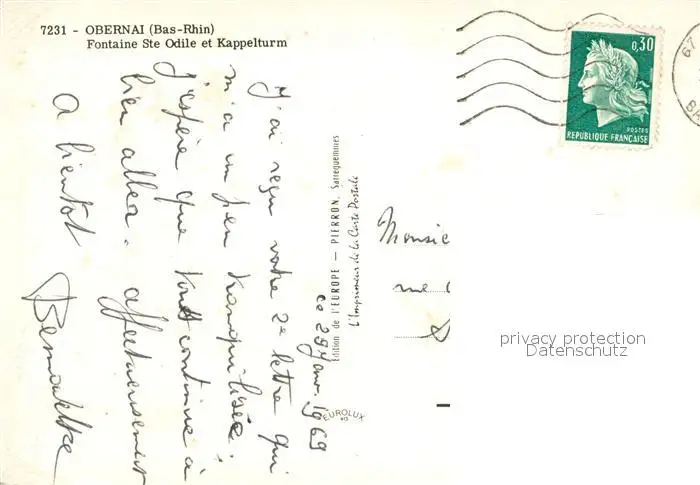 7231 - OBERNAI (Bas-Rhin)
Fontaine Ste Odile et Kappelturm
0,30
POSTES
REPUBLIQUE FRANÇAISE
67
ce 29 Janv. 1969
J'ai reçu votre 2e lettre qui
m'a un peu tranquilisée.
J'espère que tout continue à
bien aller. affectueusement
A bientôt
Bernadette
Edition de l'EUROPE — PIERRON, Sarreguemines
L'Imprimeur de la Carte Postale
EUROLUX
Monsie
rue
privacy protection
Datenschutz